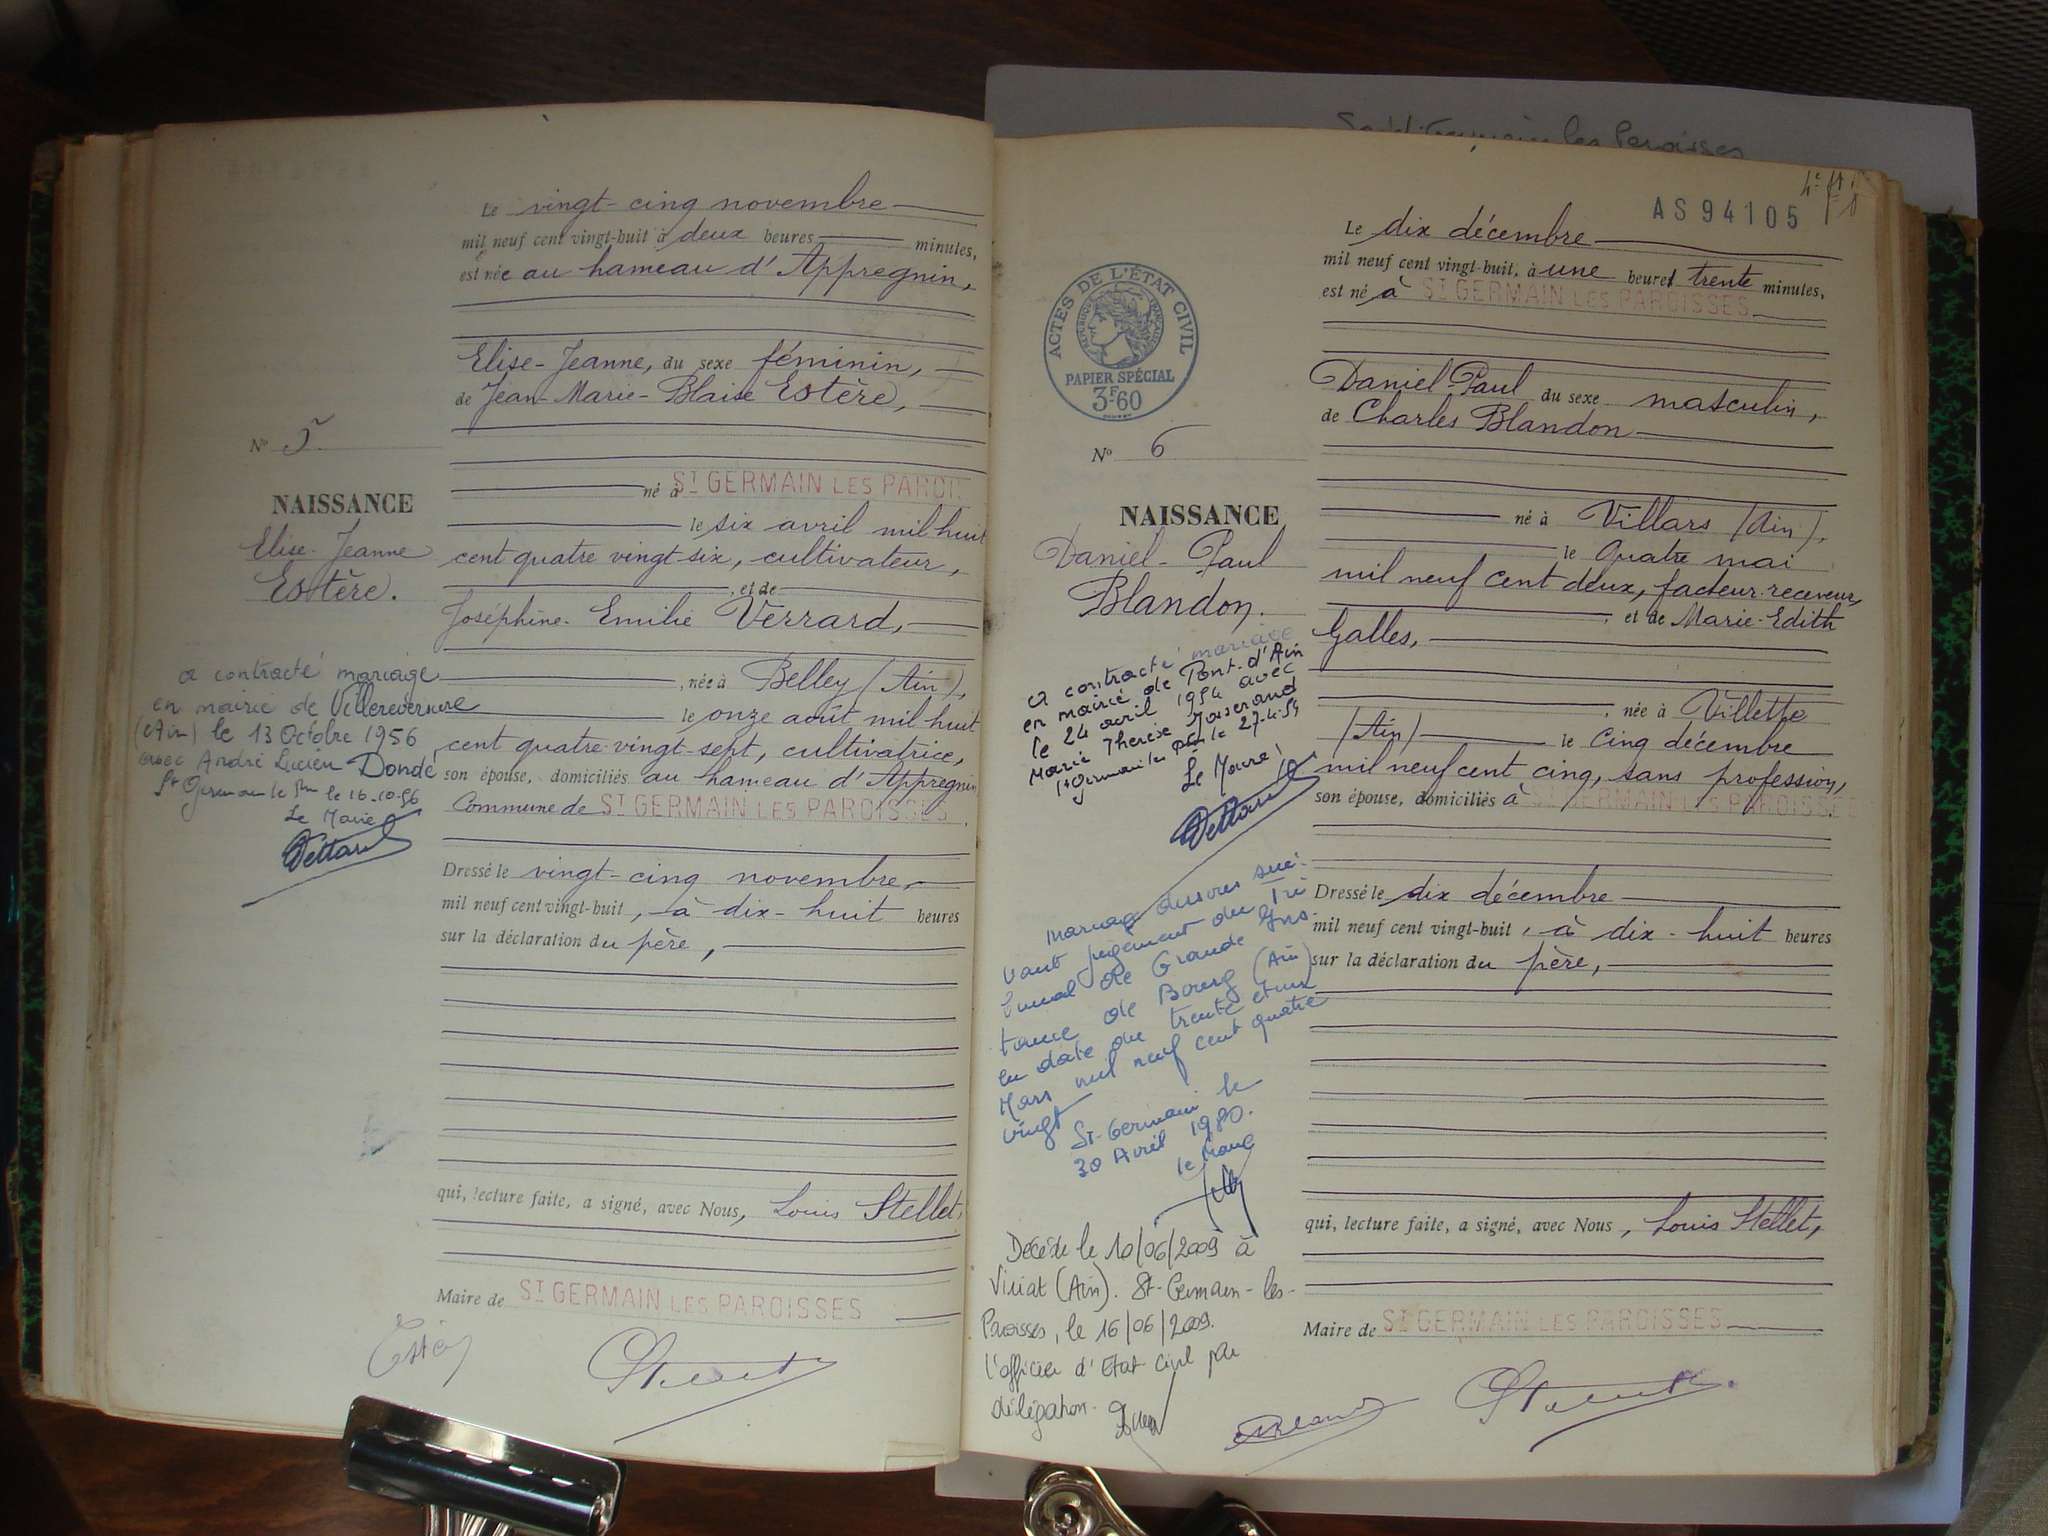 Le vingt-cinq novembre
mil neuf cent vingt-huit à deux heures minutes,
est née au hameau d'Appregnin,
Elise-Jeanne, du sexe féminin,
de Jean-Marie-Blaise Estère,
N° 5
né à ST GERMAIN LES PAROI
NAISSANCE
le six avril mil huit
Elise-Jeanne
cent quatre vingt-six, cultivateur,
Estère.
, et de
Joséphine-Emilie Verrard,
a contracté mariage
, née à Belley (Ain),
en mairie de Villereversure
le onze août mil huit
(Ain) le 13 Octobre 1956
cent quatre-vingt-sept, cultivatrice,
avec André Lucien Dondé
son épouse, domiciliés au hameau d'Appregnin
St Germain le le 16-10-56
Commune de ST GERMAIN LES PAROISSES.
Le Maire
Dressé le vingt-cinq novembre,
mil neuf cent vingt-huit, à dix-huit heures
sur la déclaration du père,
qui, lecture faite, a signé, avec Nous, Louis Stellet,
Maire de ST GERMAIN LES PAROISSES
St Germain les Paroisses
AS 94105
Le dix décembre
mil neuf cent vingt-huit, à une heure trente minutes,
est né à ST GERMAIN LES PAROISSES
ACTES DE L'ÉTAT CIVIL
RÉPUBLIQUE FRANÇAISE
PAPIER SPÉCIAL
3F60
Daniel-Paul du sexe masculin,
de Charles Blandon
N° 6
NAISSANCE
né à Villars (Ain),
Daniel-Paul
le quatre mai
Blandon.
mil neuf cent deux, facteur-receveur,
, et de Marie-Edith
Galles,
a contracté mariage
en mairie de Pont-d'Ain
le 24 avril 1954 avec
Marie Thérèse Josserand
St Germain les le 27-4-54
Le Maire
, née à Villette
(Ain) le cinq décembre
mil neuf cent cinq, sans profession,
son épouse, domiciliés à ST GERMAIN LES PAROISSES.
mariage dissous sui-
vant jugement du Tri
bunal de Grande Ins-
tance de Bourg (Ain)
en date du trente et un
Mars mil neuf cent quatre
vingt
St-Germain le
30 Avril 1980.
le Maire
Dressé le dix décembre
mil neuf cent vingt-huit, à dix-huit heures
sur la déclaration du père,
qui, lecture faite, a signé, avec Nous, Louis Stellet,
Décédé le 10/06/2009 à
Viriat (Ain). St-Germain-les-
Paroisses, le 16/06/2009.
l'officier d'Etat Civil par
délégation.
Maire de ST GERMAIN LES PAROISSES